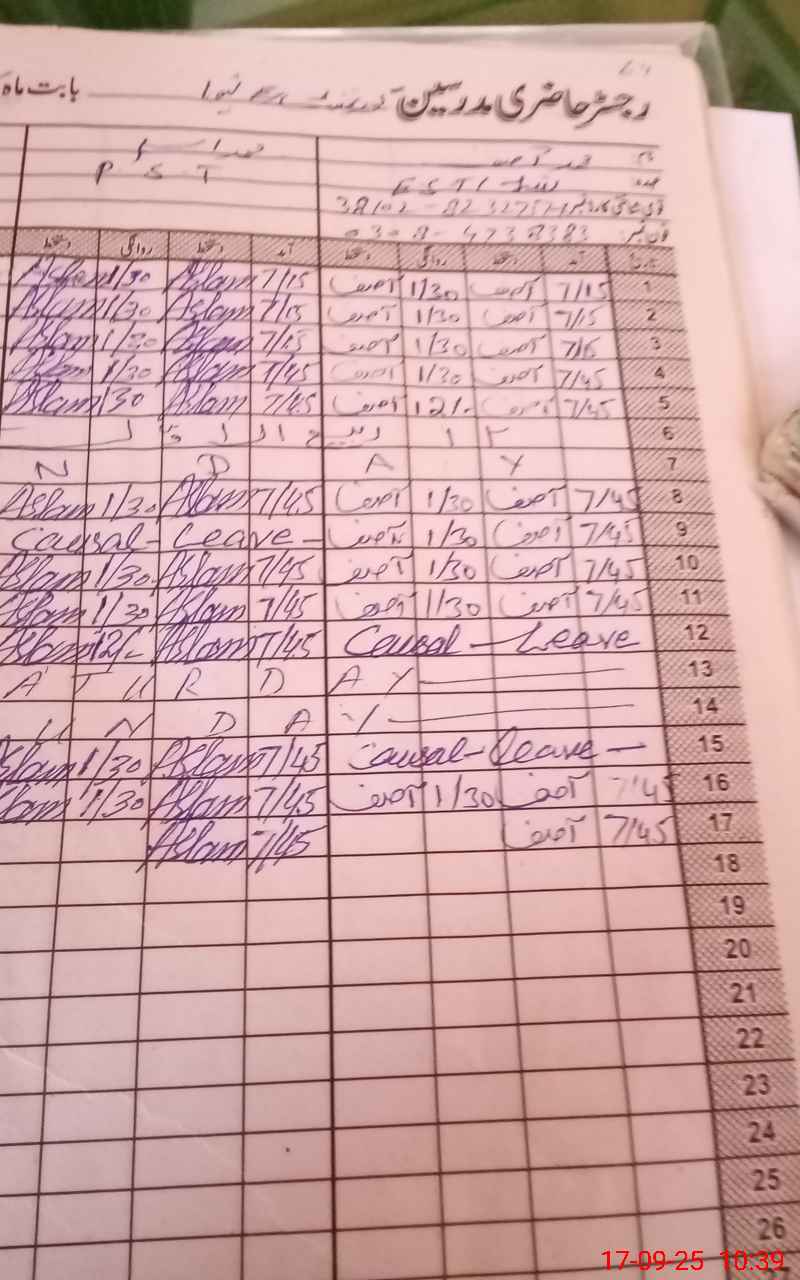 رجسٹر حاضری مدرسین بابت ماہ
نام
عہدہ P S T
EST
فون نمبر: 0308-4738383
تاریخ آمد دستخط روانگی دستخط آمد دستخط روانگی دستخط
1 7/15 آصف 1/30 آصف 7/15 Aslam 1/30 Aslam
2 7/15 آصف 1/30 آصف 7/15 Aslam 1/30 Aslam
3 7/15 آصف 1/30 آصف 7/15 Aslam 1/30 Aslam
4 7/45 آصف 1/30 آصف 7/45 Aslam 1/30 Aslam
5 7/45 آصف 12/- آصف 7/45 Aslam 1/30 Aslam
6 ١٢ ربیع الاول
7 N D A Y
8 7/45 آصف 1/30 آصف 7/45 Aslam 1/30 Aslam
9 7/45 آصف 1/30 آصف Causal - Leave -
10 7/45 آصف 1/30 آصف 7/45 Aslam 1/30 Aslam
11 7/45 آصف 1/30 آصف 7/45 Aslam 1/30 Aslam
12 Causal - Leave 7/45 Aslam 12/- Aslam
13 A T U R D A Y
14 U N D A Y
15 Causal - Leave - 7/45 Aslam 1/30 Aslam
16 7/45 آصف 1/30 آصف 7/45 Aslam 1/30 Aslam
17 7/45 آصف 7/45 Aslam
18
19
20
21
22
23
24
25
26
17-09-25 10:39